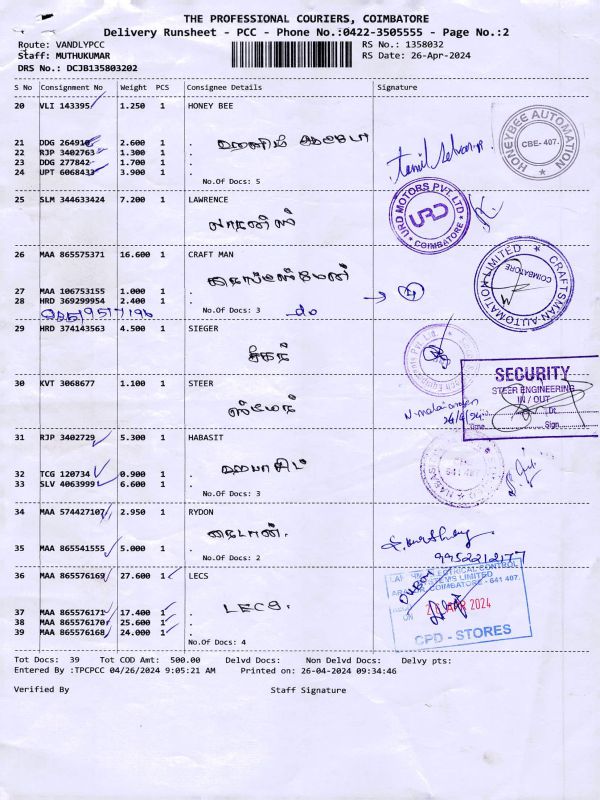 THE PROFESSIONAL COURIERS, COIMBATORE
Delivery Runsheet - PCC - Phone No.:0422-3505555 - Page No.:2
Route: VANDLYPCC RS No.: 1358032
Staff: MUTHUKUMAR RS Date: 26-Apr-2024
DRS No.: DCJB135803202
S No Consignment No Weight PCS Consignee Details Signature
20 VLI 143395 1.250 1 HONEY BEE
HONEYBEE AUTOMATION CBE- 407.
21 DDG 264910 2.600 1 .
22 RJP 3402763 1.300 1 .
23 DDG 277842 1.700 1 .
24 UPT 6068433 3.900 1 .
Tamil Selvan.P
No.Of Docs: 5
25 SLM 344633424 7.200 1 LAWRENCE
லாரன்ஸ்
URD MOTORS PVT. LTD. URD COIMBATORE
26 MAA 865575371 16.600 1 CRAFT MAN
CRAFTSMAN AUTOMATION LIMITED COIMBATORE
27 MAA 106753155 1.000 1 .
28 HRD 369299954 2.400 1 .
No.Of Docs: 3 do
29 HRD 374143563 4.500 1 SIEGER
சீகர்
30 KVT 3068677 1.100 1 STEER
SECURITY
STEER ENGINEERING
IN / OUT
Dt.
Time Sign
31 RJP 3402729 5.300 1 HABASIT
ஹபாசிட்
32 TCG 120734 0.900 1 .
33 SLV 4063999 6.600 1 .
No.Of Docs: 3
34 MAA 574427107 2.950 1 RYDON
ரைடான்.
35 MAA 865541555 5.000 1 .
No.Of Docs: 2
9952212177
36 MAA 865576169 27.600 1 LECS
LECS.
37 MAA 865576171 17.400 1 .
38 MAA 865576170 25.600 1 .
39 MAA 865576168 24.000 1 .
No.Of Docs: 4
ELECTRICAL CONTROL
SYSTEMS LIMITED
COIMBATORE - 641 407.
ON 26 APR 2024
CPD - STORES
Tot Docs: 39 Tot COD Amt: 500.00 Delvd Docs: Non Delvd Docs: Delvy pts:
Entered By :TPCPCC 04/26/2024 9:05:21 AM Printed on: 26-04-2024 09:34:46
Verified By Staff Signature